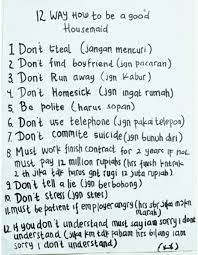 12 WAY How to be a good
Housemaid
1 Don't steal (jangan mencuri)
2 Don't find boyfriend (jgn pacaran)
3 Don't Run away (jgn Kabur)
4 Don't Homesick (jgn ingat rumah)
5 Be polite (harus sopan)
6 Don't use telephone (jgn pakai telepon)
7. Don't commite suicide (jgn bunuh diri)
8 Must work finish contract for 2 years if not
must pay 12 million rupiahs (hrs finish kntrak
2 th jika tdk harus gnt rugi 12 juta rupiah)
9 Don't tell a lie (jgn berbohong)
10 Don't stress (jgn stres)
11 must be patient if employer angry (hrs sbr jika majikan
marah)
12 if you don't understand must say i am sorry i don't
understand (jika tdk paham hrs bilang i am
sorry i don't understand)